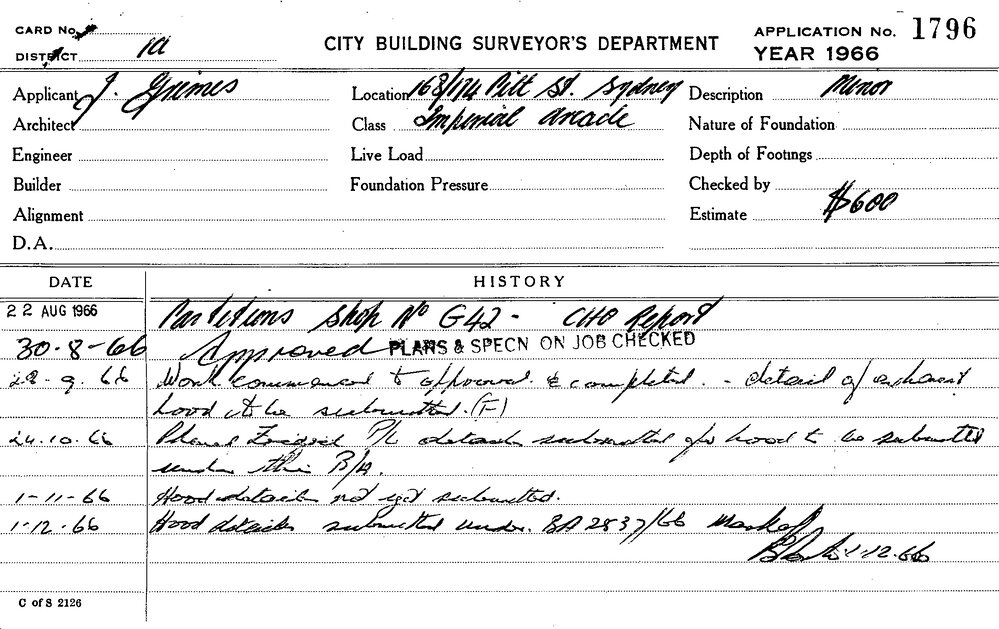 CARD No.
DISTRICT 1a
CITY BUILDING SURVEYOR'S DEPARTMENT
APPLICATION No. 1796
YEAR 1966
Applicant J. Grimes
Location 168/174 Pitt St. Sydney
Description Minor
Architect
Class Imperial Arcade
Nature of Foundation
Engineer
Live Load
Depth of Footings
Builder
Foundation Pressure
Checked by
Alignment
Estimate $600
D.A.
DATE
HISTORY
22 AUG 1966 Partitions Shop No G42 - CHO Report
30.8-66 Approved PLANS & SPECN ON JOB CHECKED
28.9.66 Work commenced to approved & completed. - detail of exhaust
hood to be submitted. (F)
24.10.66 Phoned P/L details submitted for hood to be submitted
under this B/A.
1-11-66 Hood details not yet submitted.
1.12.66 Hood details submitted under BA 2837/66 Mark off
1.12.66
C of S 2126